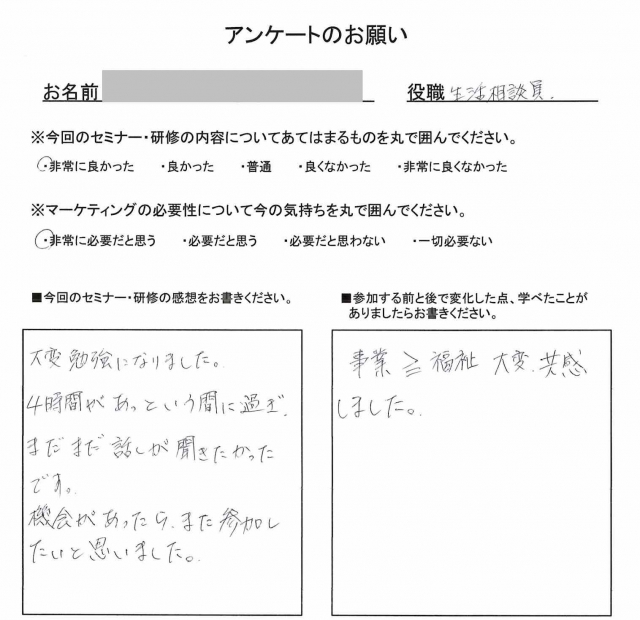 アンケートのお願い
お名前
役職 生活相談員.
※今回のセミナー・研修の内容についてあてはまるものを丸で囲んでください。
・非常に良かった ・良かった ・普通 ・良くなかった ・非常に良くなかった
※マーケティングの必要性について今の気持ちを丸で囲んでください。
・非常に必要だと思う ・必要だと思う ・必要だと思わない ・一切必要ない
■今回のセミナー・研修の感想をお書きください。
大変勉強になりました。
4時間があっという間に過ぎ、
まだまだ話しが聞きたかった
です。
機会があったら、また参加し
たいと思いました。
■参加する前と後で変化した点、学べたことが
ありましたらお書きください。
事業 ≧ 福祉 大変、共感
しました。